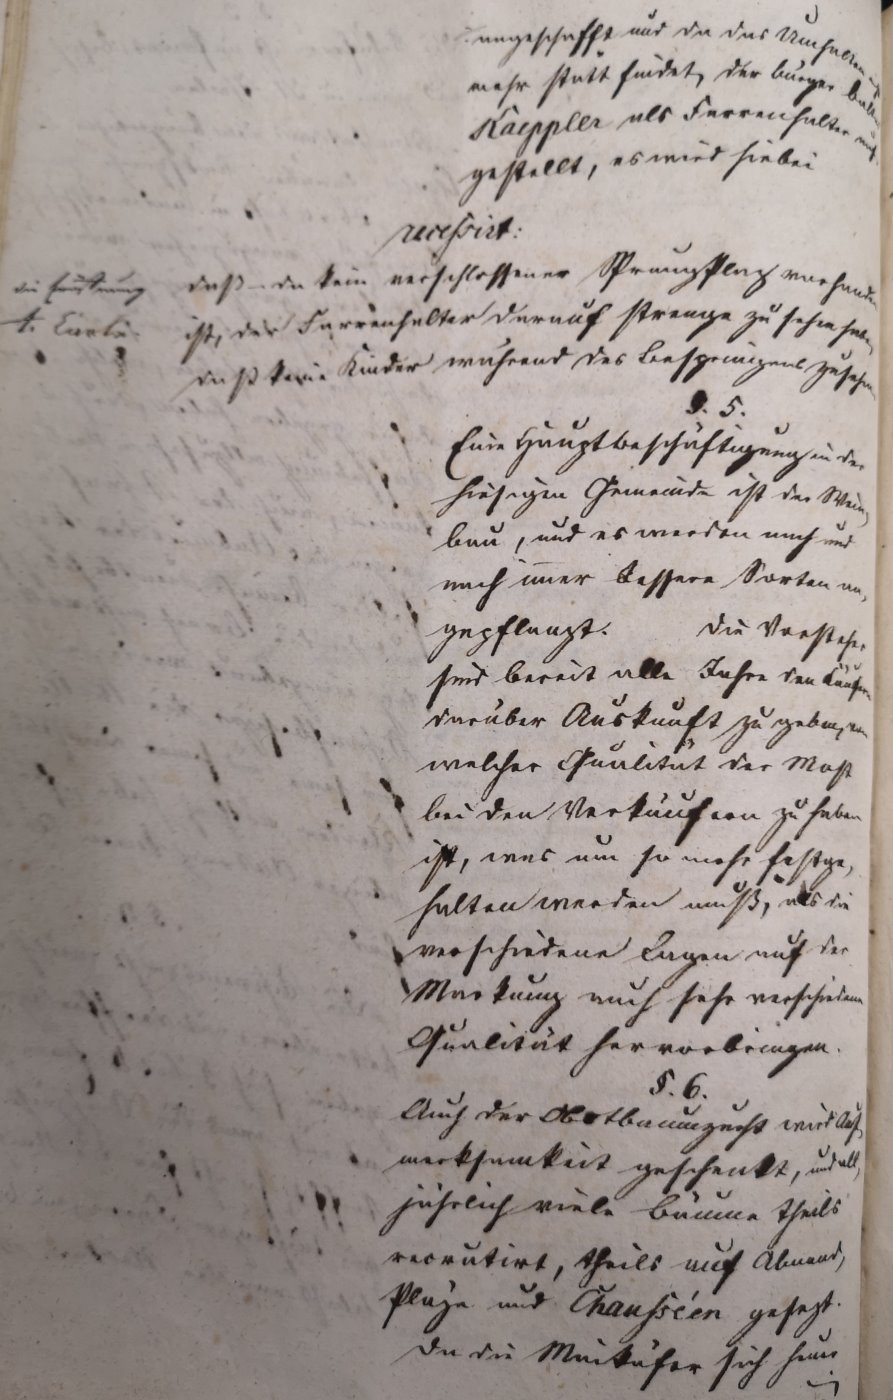 angeschafft und da das Umhalten
mehr statt findet, der bürger
Kaeppler als Farrenhalter auf
gestellt, es wird hiebei
recessirt:
daß da kein verschlossener Sprungplaz vorhanden
ist, der Farrenhalter darauf strenge zu sehen habe,
daß keine Kinder während des Bespringens zusehen
§. 5.
Eine Hauptbeschäftigung in der
hiesigen Gemeinde ist der Wein,
bau, und es werden nach und
nach imer bessere Sorten an,
gepflanzt. Die Vorsteher
sind bereit alle Jahre den Käufern
darüber Auskunft zu geben, von
welcher Qualität der Most
bei den Verkäufern zu haben
ist, was um so mehr festge,
halten werden muß, als die
verschiedene Lagen auf der
Markung auch sehr verschiedene
Qualität hervorbringen.
§. 6.
Auch der Obstbaumzucht wird Auf,
merksamkeit geschenkt, und all,
jährlich viele Bäume theils
recrutirt, theils auf Allmand,
Pläze und Chausséen gesezt.
Da die Maikäfer sich heur